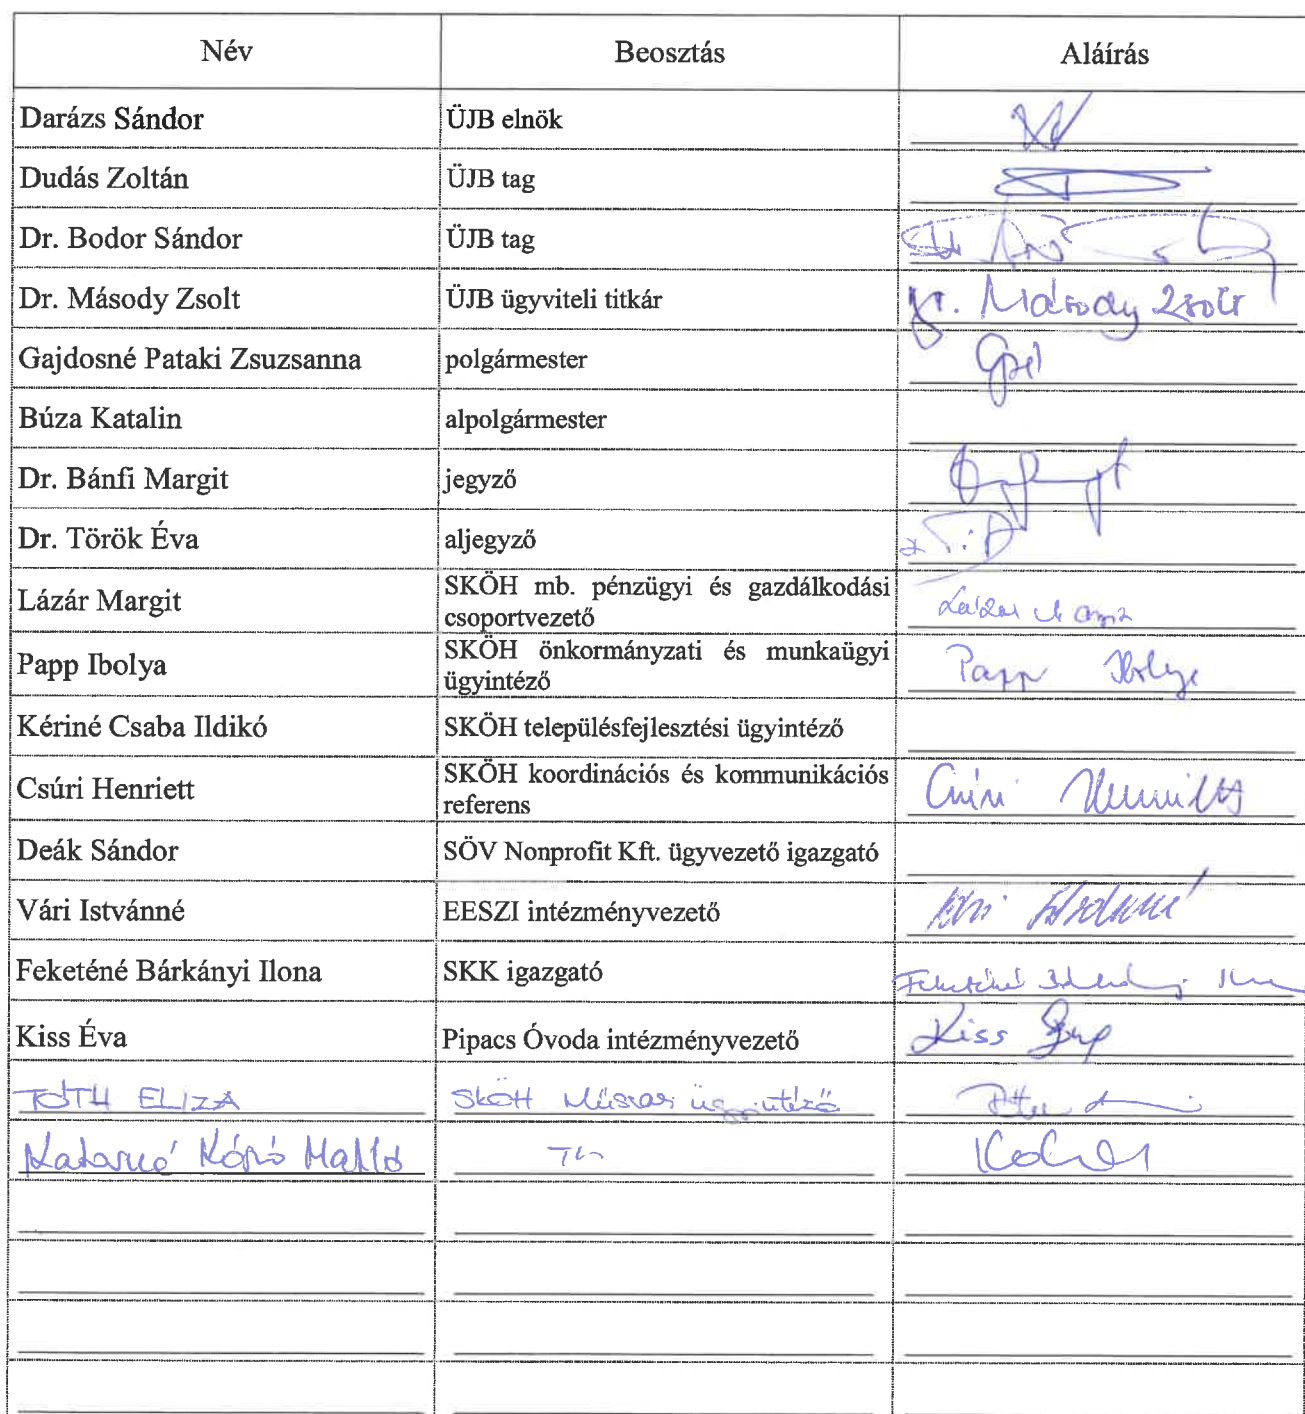 Név Beosztás Aláírás
Darázs Sándor ÜJB elnök
Dudás Zoltán ÜJB tag
Dr. Bodor Sándor ÜJB tag
Dr. Másody Zsolt ÜJB ügyviteli titkár Dr. Másody Zsolt
Gajdosné Pataki Zsuzsanna polgármester
Búza Katalin alpolgármester
Dr. Bánfi Margit jegyző
Dr. Török Éva aljegyző
Lázár Margit SKÖH mb. pénzügyi és gazdálkodási
csoportvezető
Papp Ibolya SKÖH önkormányzati és munkaügyi
ügyintéző Papp Ibolya
Kériné Csaba Ildikó SKÖH településfejlesztési ügyintéző
Csúri Henriett SKÖH koordinációs és kommunikációs
referens Csúri Henriett
Deák Sándor SÖV Nonprofit Kft. ügyvezető igazgató
Vári Istvánné EESZI intézményvezető Vári Istvánné
Feketéné Bárkányi Ilona SKK igazgató Feketéné
Kiss Éva Pipacs Óvoda intézményvezető Kiss Éva
TÓTH ELIZA SKÖH Műszaki ügyintéző